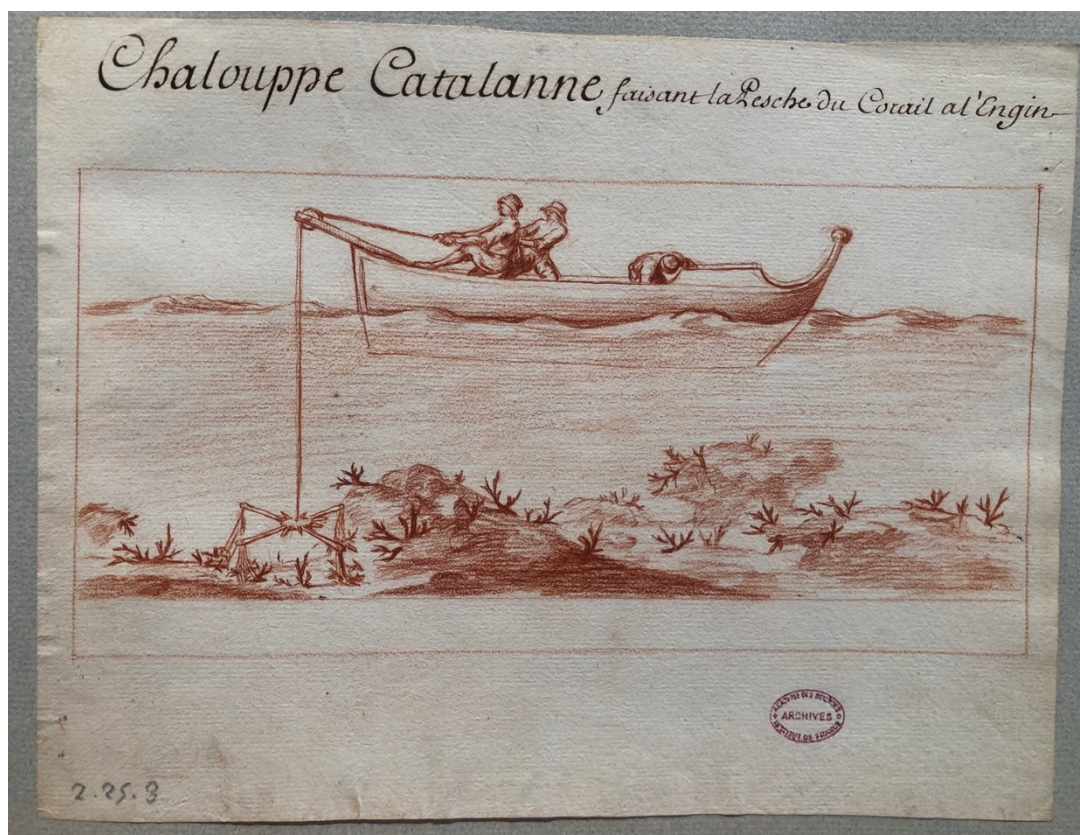 Chalouppe Catalanne faisant la Pesche du Corail a l'Engin
ACADEMIE DES SCIENCES
ARCHIVES
INSTITUT DE FRANCE
2.25.3